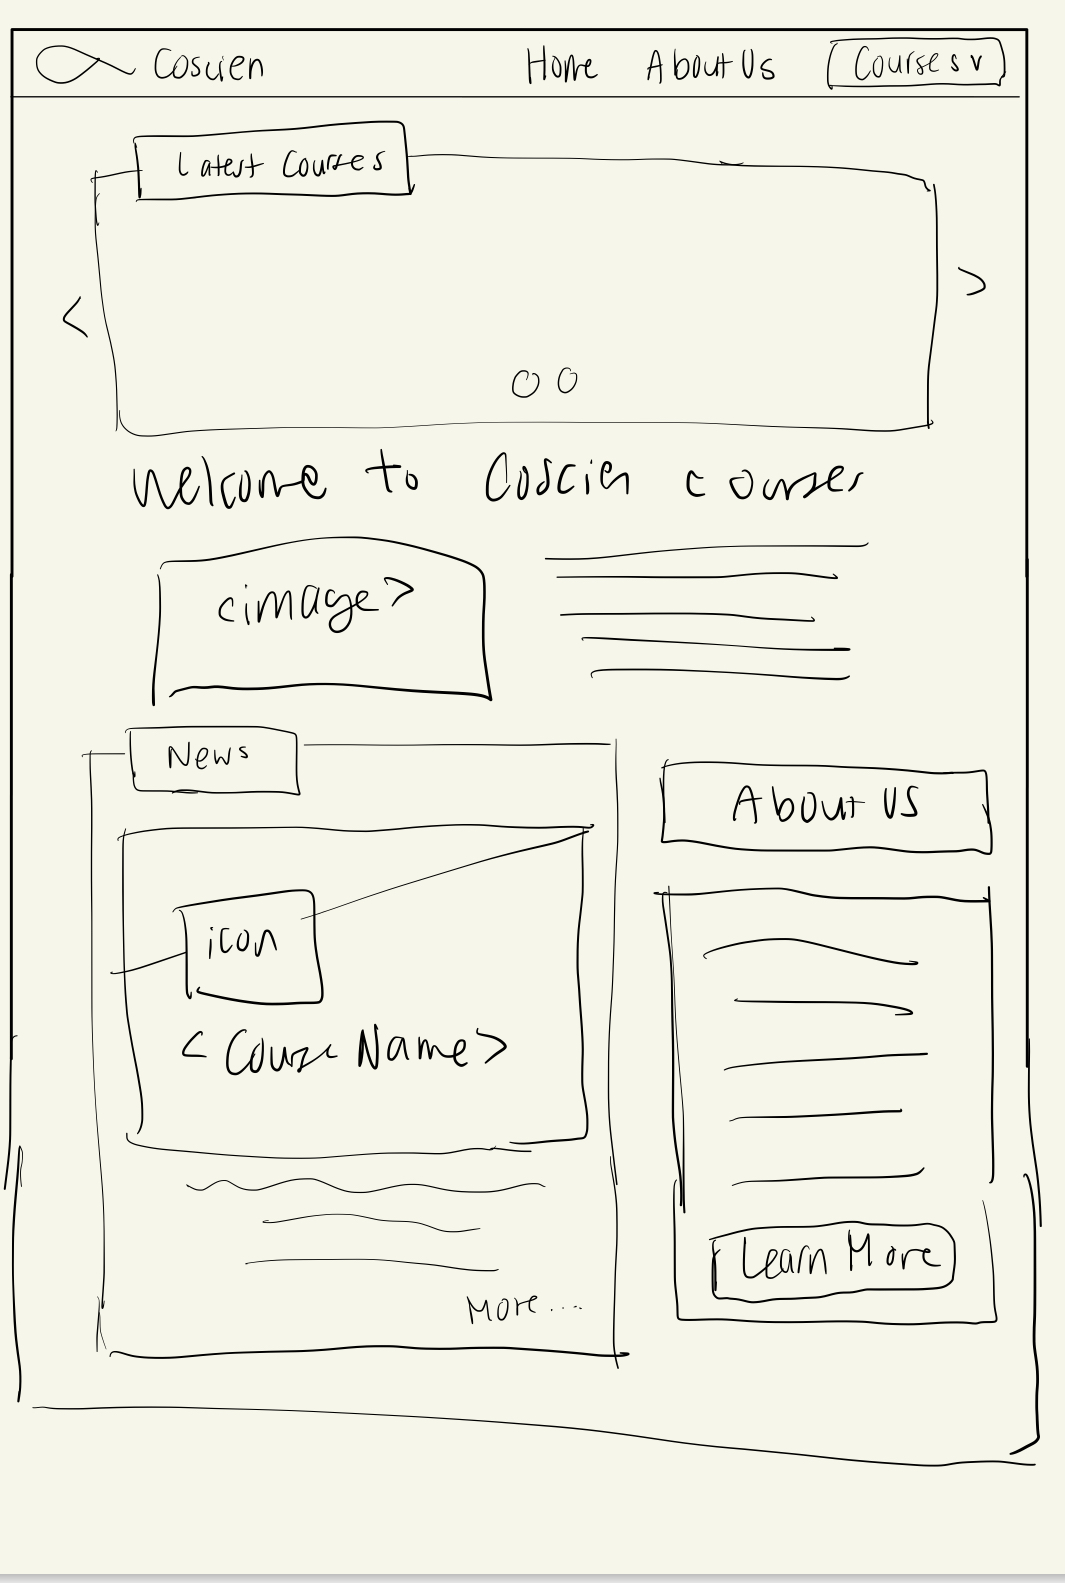 Coscien Home About Us Courses v
Latest Courses
<
>
Welcome to Coscien courses
<image>
News
About US
icon
<Course Name>
Learn More
More....